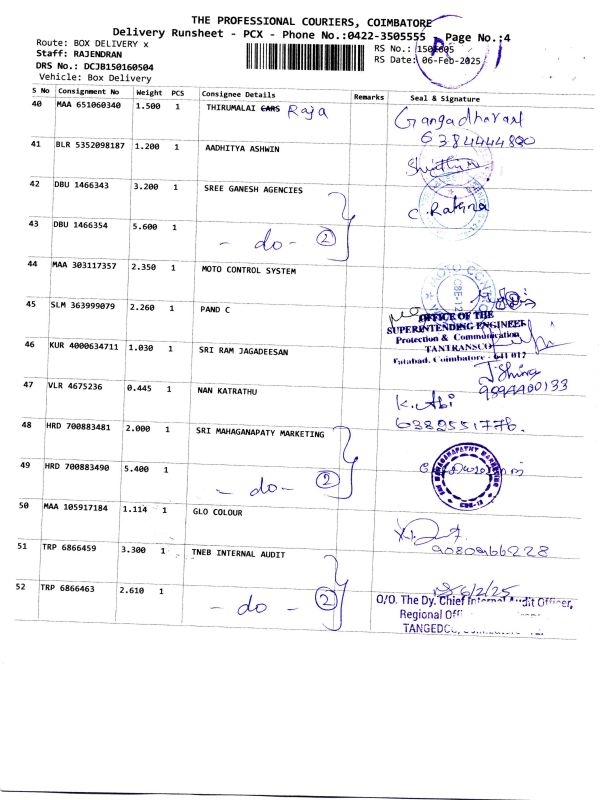 THE PROFESSIONAL COURIERS, COIMBATORE
Delivery Runsheet - PCX - Phone No.:0422-3505555 - Page No.:4
Route: BOX DELIVERY x
RS No.:
Staff: RAJENDRAN
RS Date: 06-Feb-2025
DRS No.: DCJB150160504
Vehicle: Box Delivery
S No Consignment No Weight PCS Consignee Details Remarks Seal & Signature
40 MAA 651060340 1.500 1 THIRUMALAI CARS Raja
Gangadharan
6384444800
41 BLR 5352098187 1.200 1 AADHITYA ASHWIN
42 DBU 1466343 3.200 1 SREE GANESH AGENCIES
C. Rathna
43 DBU 1466354 5.600 1
- do - 2
44 MAA 303117357 2.350 1 MOTO CONTROL SYSTEM
45 SLM 363999079 2.260 1 PAND C
OFFICE OF THE
SUPERINTENDING ENGINEER
Protection & Communication
TANTRANSCO
Tatabad, Coimbatore - 641 012
46 KUR 4000634711 1.030 1 SRI RAM JAGADEESAN
9894400133
47 VLR 4675236 0.445 1 NAN KATRATHU
K. Abi
6382551776.
48 HRD 700883481 2.000 1 SRI MAHAGANAPATY MARKETING
49 HRD 700883490 5.400 1
- do - 2
50 MAA 105917184 1.114 1 GLO COLOUR
9080966228
51 TRP 6866459 3.300 1 TNEB INTERNAL AUDIT
52 TRP 6866463 2.610 1
- do - 2
6/2/25
O/O. The Dy. Chief Internal Audit Officer,
Regional
TANGEDCO,